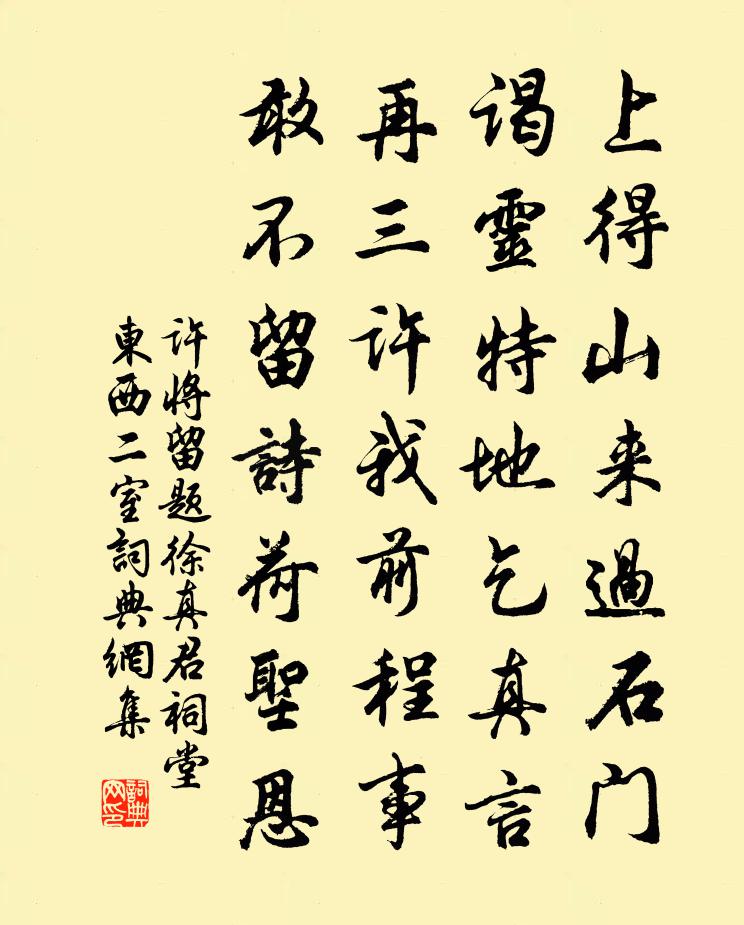 上得山来過石门
谒靈特地乞真言
再三许我前程事
敢不留詩荷聖恩
许将留题徐真君祠堂
東西二室詞典網集
詞典网印